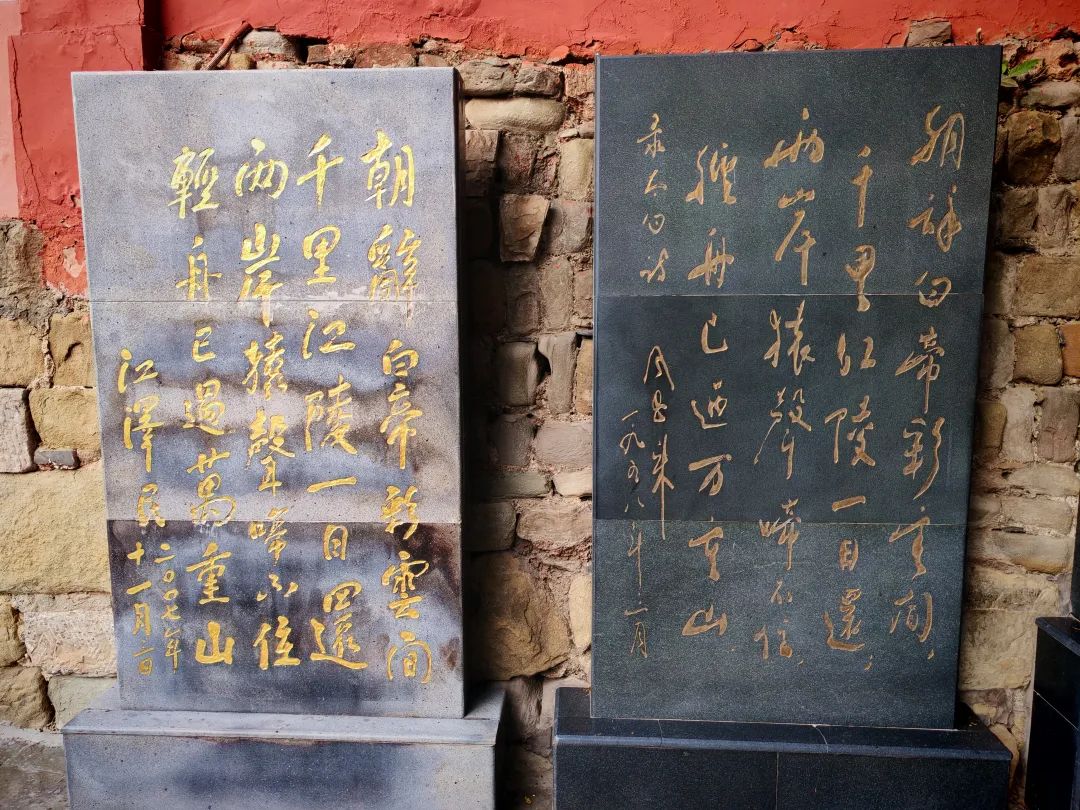 朝辭白帝彩雲間
千里江陵一日還
兩岸猿聲啼不住
輕舟已過萬重山
江澤民
二〇〇七年
十一月一日
朝辞白帝彩雲間，
千里江陵一日還；
兩岸猿聲啼不住，
輕舟已过万重山．
录太白诗
周恩来
一九五八年一月